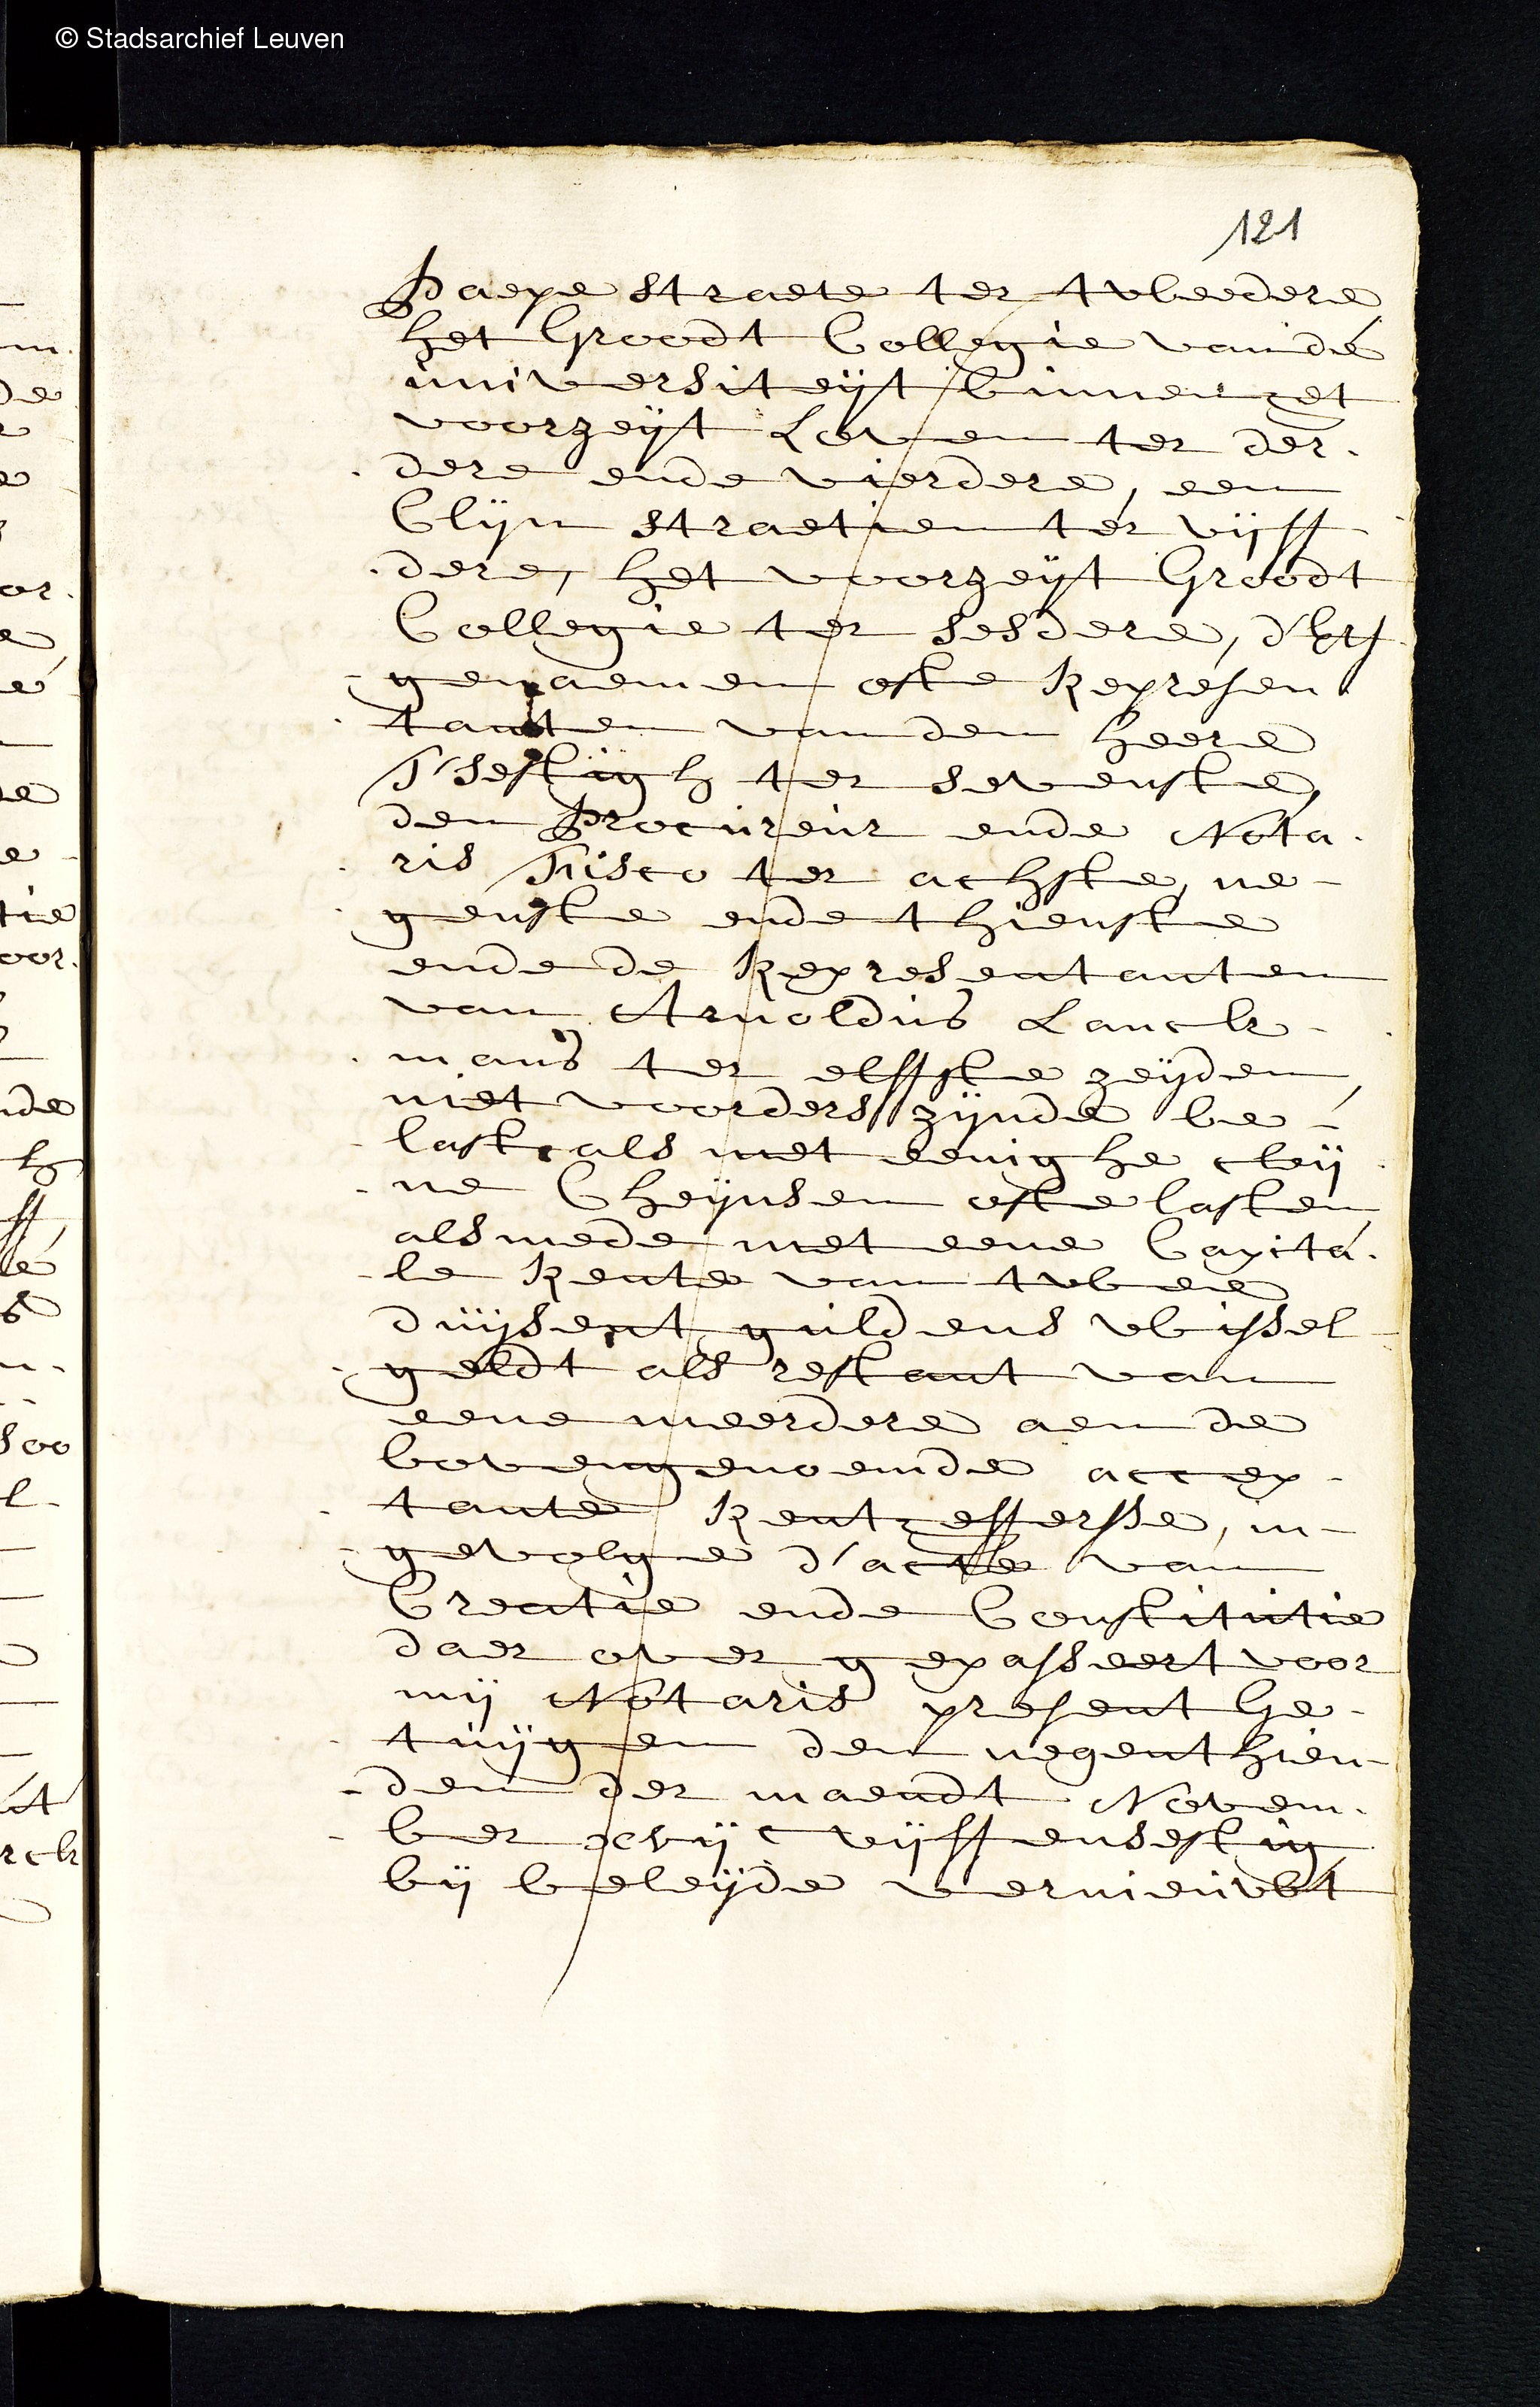 © Stadsarchief Leuven
121
Paepe straete ter tweedere
het Groodt Collegie vande
universiteijt binnen het
voorzeijt Loven ter der.
dere ende vierdere, een
Clijn straetien ter vijff
dere, het voorzeijt Groodt
Collegie ter sesdere, d'Erff
genaemen ofte Represen
tanten van den heere
T'Sestigh ter sevenste,
den Procureur ende Nota.
ris Tisco ter achste, ne-
genste ende thienste
ende de Representanten
van Arnoldus Lanck-
mans ter elffste zeijden,
niet voorders zijnde be-
last als met eenighe cleij
ne Cheijnsen ofte lasten
alsmede met eene Capita.
le Rente van twee
duijsent guldens wissel
geldt als restant van
eene meerdere aen de
bovengenoemde accep-
tante Rentheffersse, in-
gevolge d'acte van
Creatie ende Constitutie
daer over gepasseert voor
mij Notaris present Ge-
tuijgen den negenthien-
den der maendt Novem.
ber xvijc vijffensestig
bij beleijde vernieuwt